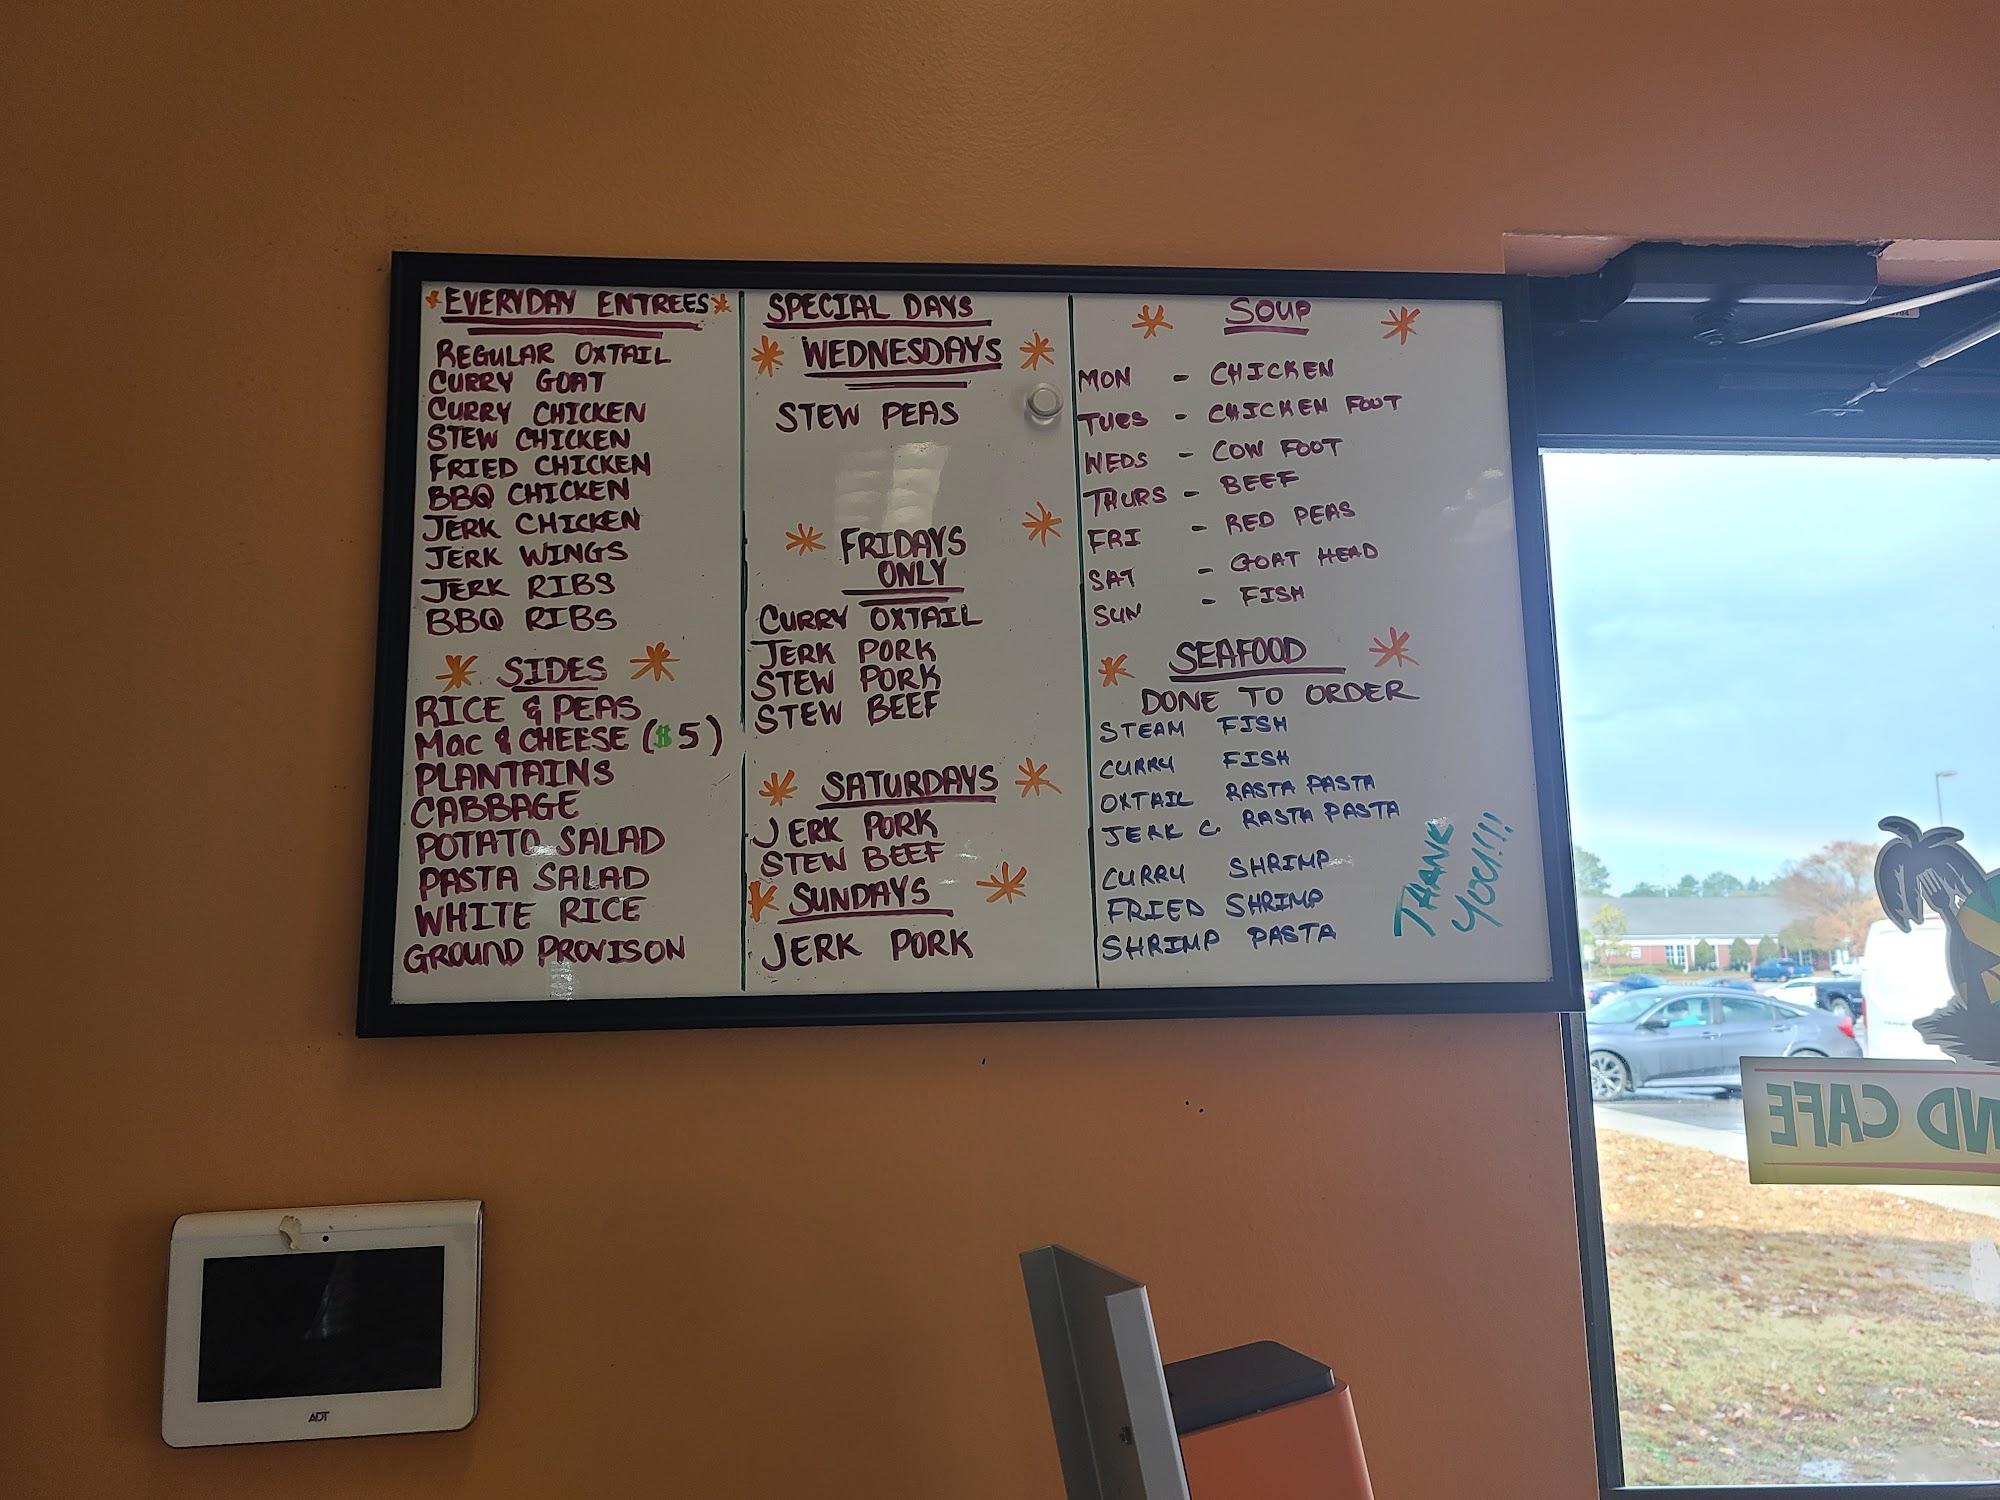 EVERYDAY ENTREES
REGULAR OXTAIL
CURRY GOAT
CURRY CHICKEN
STEW CHICKEN
FRIED CHICKEN
BBQ CHICKEN
JERK CHICKEN
JERK WINGS
JERK RIBS
BBQ RIBS
SIDES
RICE & PEAS
MAC & CHEESE ($5)
PLANTAINS
CABBAGE
POTATO SALAD
PASTA SALAD
WHITE RICE
GROUND PROVISON
SPECIAL DAYS
WEDNESDAYS
STEW PEAS
FRIDAYS
ONLY
CURRY OXTAIL
JERK PORK
STEW PORK
STEW BEEF
SATURDAYS
JERK PORK
STEW BEEF
SUNDAYS
JERK PORK
SOUP
MON - CHICKEN
TUES - CHICKEN FOOT
WEDS - COW FOOT
THURS - BEEF
FRI - RED PEAS
SAT - GOAT HEAD
SUN - FISH
SEAFOOD
DONE TO ORDER
STEAM FISH
CURRY FISH
OXTAIL RASTA PASTA
JERK C. RASTA PASTA
CURRY SHRIMP
FRIED SHRIMP
SHRIMP PASTA
THANK
YOU!!!
ND CAFE
ADT